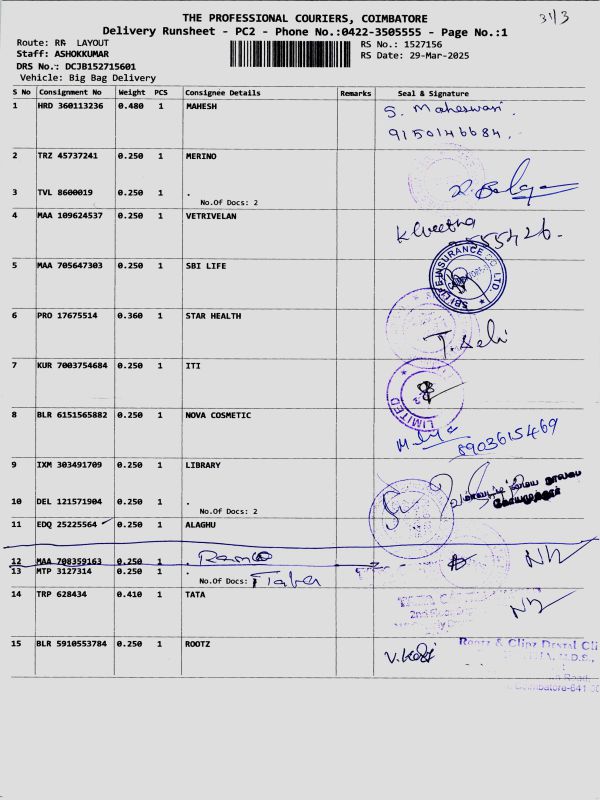 THE PROFESSIONAL COURIERS, COIMBATORE
31/3
Delivery Runsheet - PC2 - Phone No.:0422-3505555 - Page No.:1
Route: RR LAYOUT
RS No.: 1527156
Staff: ASHOKKUMAR
RS Date: 29-Mar-2025
DRS No.: DCJB152715601
Vehicle: Big Bag Delivery
S No Consignment No Weight PCS Consignee Details Remarks Seal & Signature
1 HRD 360113236 0.480 1 MAHESH S. Maheswari.
9150146684.
2 TRZ 45737241 0.250 1 MERINO
3 TVL 8600019 0.250 1 .
No.Of Docs: 2
4 MAA 109624537 0.250 1 VETRIVELAN
5 MAA 705647303 0.250 1 SBI LIFE
SBI LIFE INSURANCE CO. LTD.
6 PRO 17675514 0.360 1 STAR HEALTH
7 KUR 7003754684 0.250 1 ITI
LIMITED
8 BLR 6151565882 0.250 1 NOVA COSMETIC
8903615469
9 IXM 303491709 0.250 1 LIBRARY
10 DEL 121571904 0.250 1 .
No.Of Docs: 2
11 EDQ 25225564 0.250 1 ALAGHU
12 MAA 708359163 0.250 1 .
13 MTP 3127314 0.250 1 .
No.Of Docs:
14 TRP 628434 0.410 1 TATA
15 BLR 5910553784 0.250 1 ROOTZ
Rootz & Clipz Dental Cli
Road,
Coimbatore-641